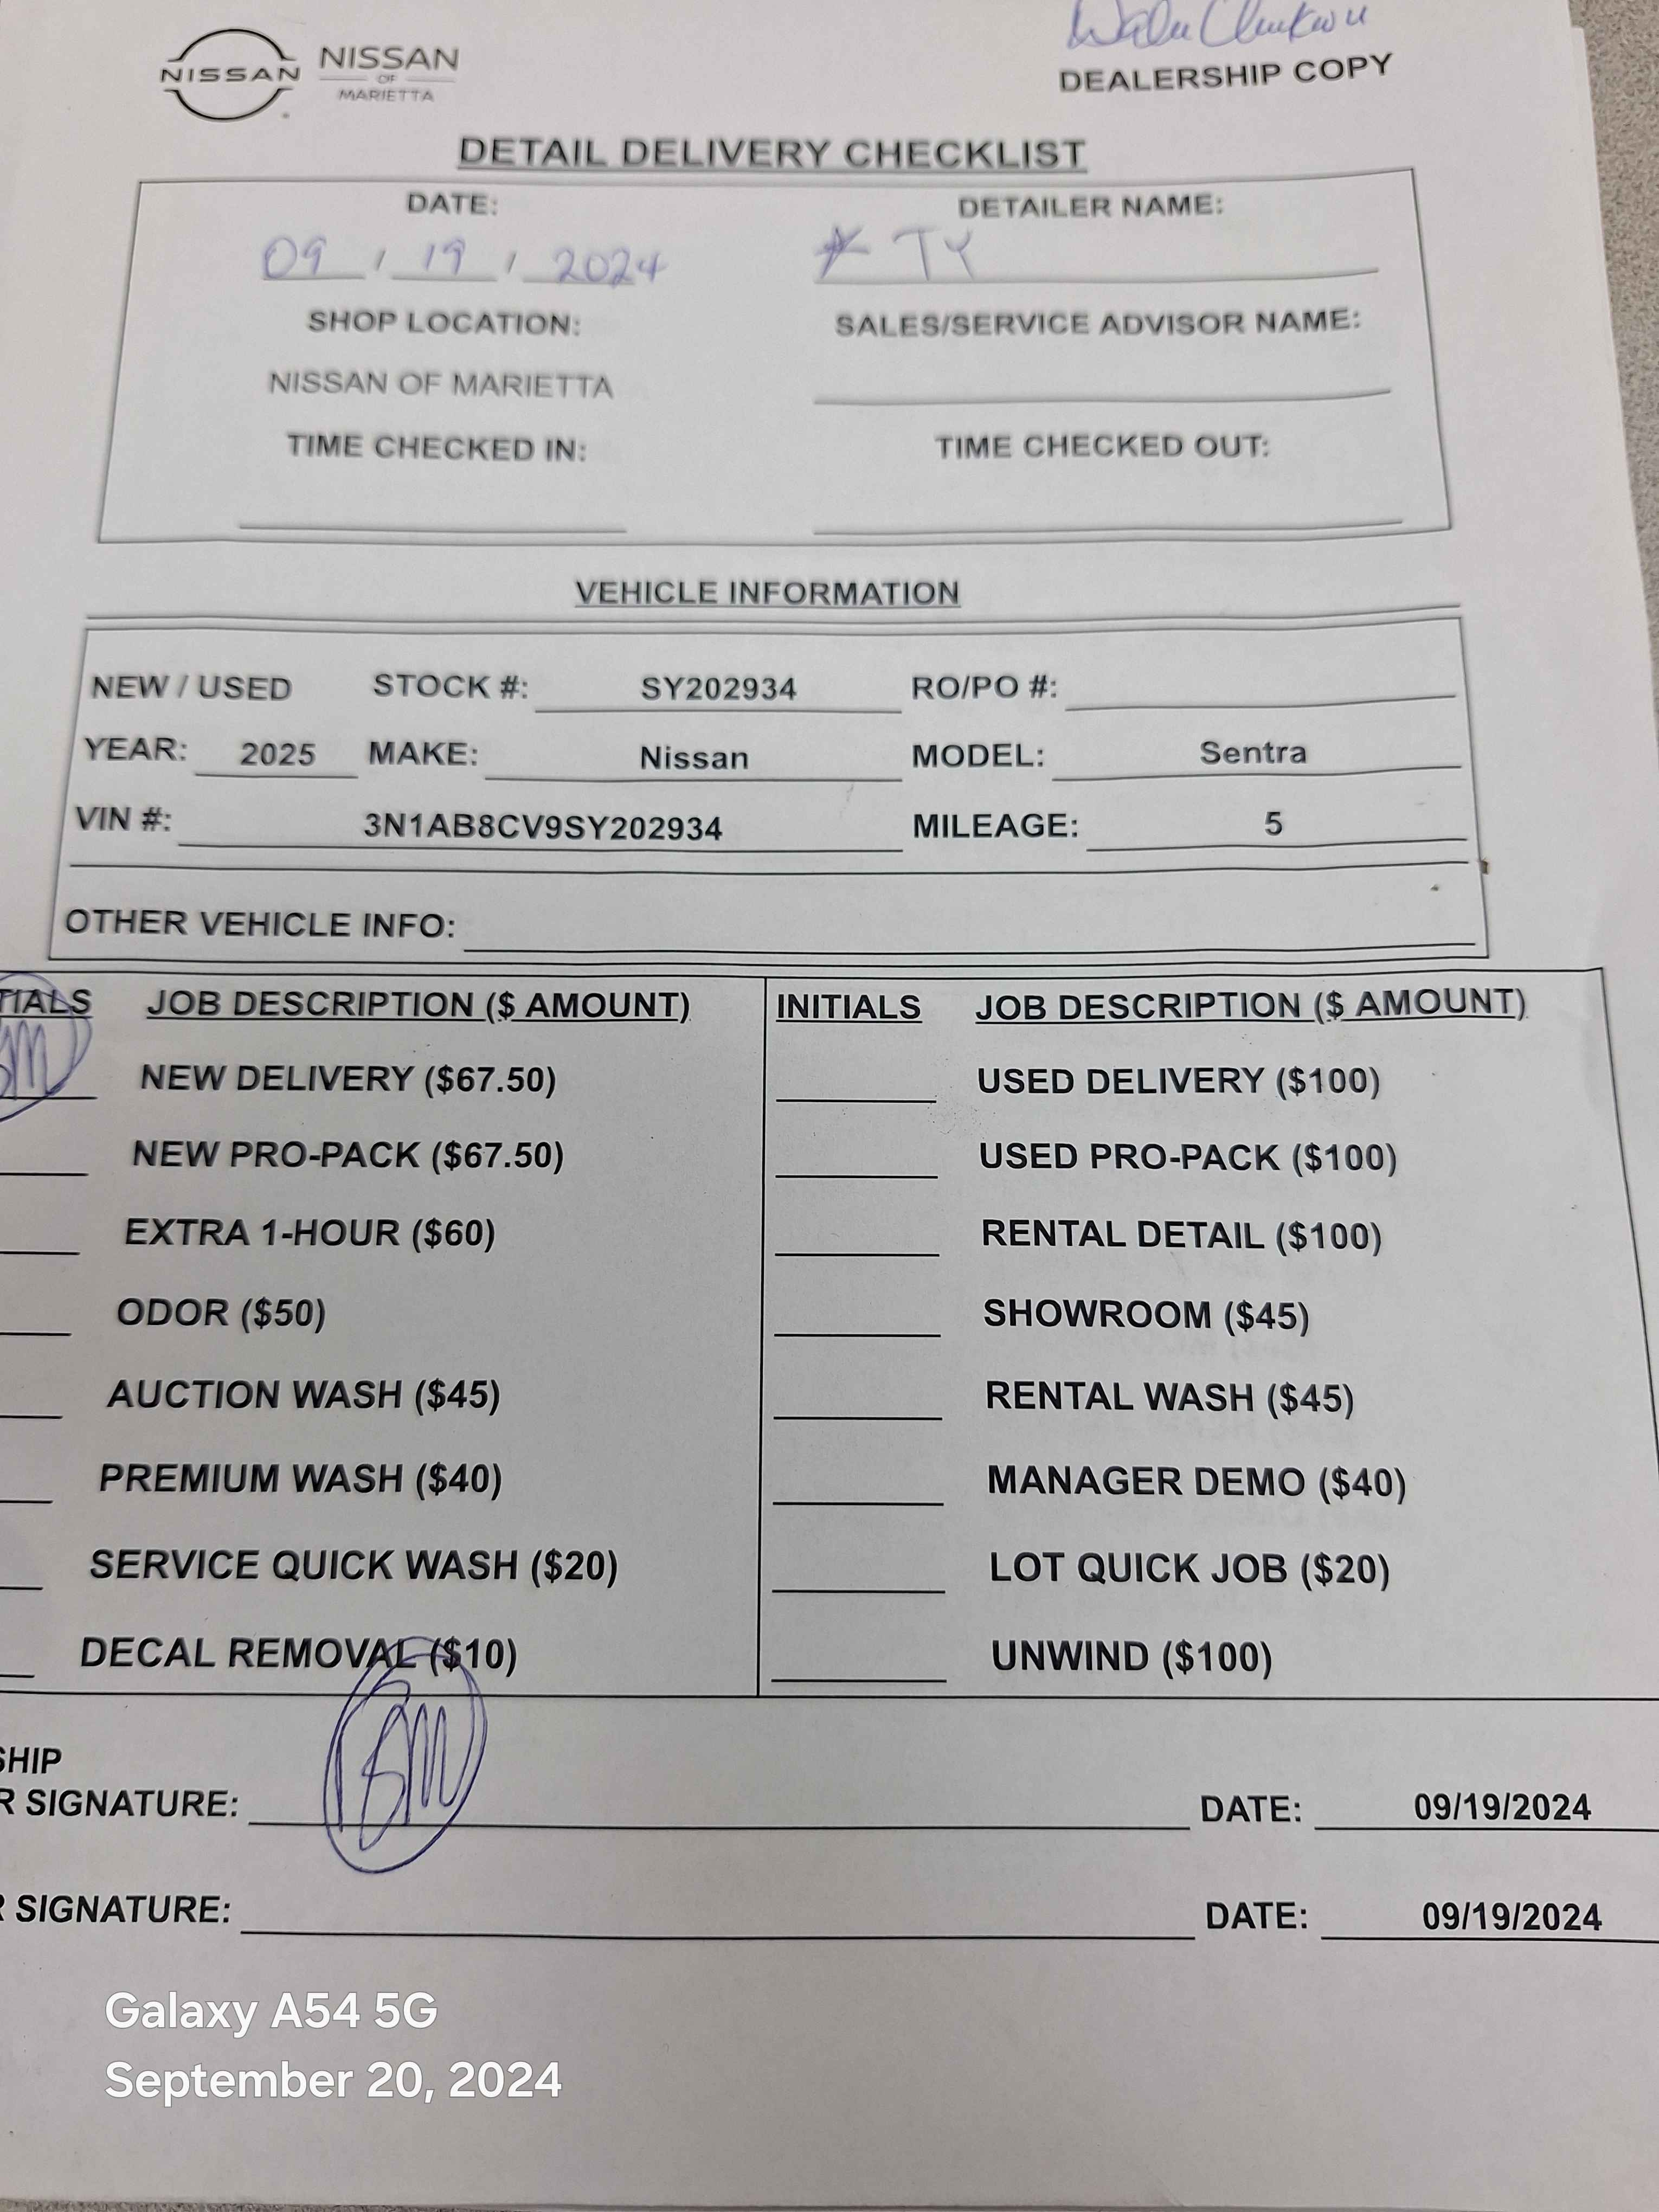 DEALERSHIP COPY
NISSAN NISSAN
OF
MARIETTA
DETAIL DELIVERY CHECKLIST
DATE: DETAILER NAME:
09 / 19 / 2024 * TY
SHOP LOCATION: SALES/SERVICE ADVISOR NAME:
NISSAN OF MARIETTA
TIME CHECKED IN: TIME CHECKED OUT:
VEHICLE INFORMATION
NEW / USED STOCK #: SY202934 RO/PO #:
YEAR: 2025 MAKE: Nissan MODEL: Sentra
VIN #: 3N1AB8CV9SY202934 MILEAGE: 5
OTHER VEHICLE INFO:
TIALS JOB DESCRIPTION ($ AMOUNT) INITIALS JOB DESCRIPTION ($ AMOUNT)
NEW DELIVERY ($67.50) USED DELIVERY ($100)
NEW PRO-PACK ($67.50) USED PRO-PACK ($100)
EXTRA 1-HOUR ($60) RENTAL DETAIL ($100)
ODOR ($50) SHOWROOM ($45)
AUCTION WASH ($45) RENTAL WASH ($45)
PREMIUM WASH ($40) MANAGER DEMO ($40)
SERVICE QUICK WASH ($20) LOT QUICK JOB ($20)
DECAL REMOVAL ($10) UNWIND ($100)
SHIP
R SIGNATURE: DATE: 09/19/2024
R SIGNATURE: DATE: 09/19/2024
Galaxy A54 5G
September 20, 2024